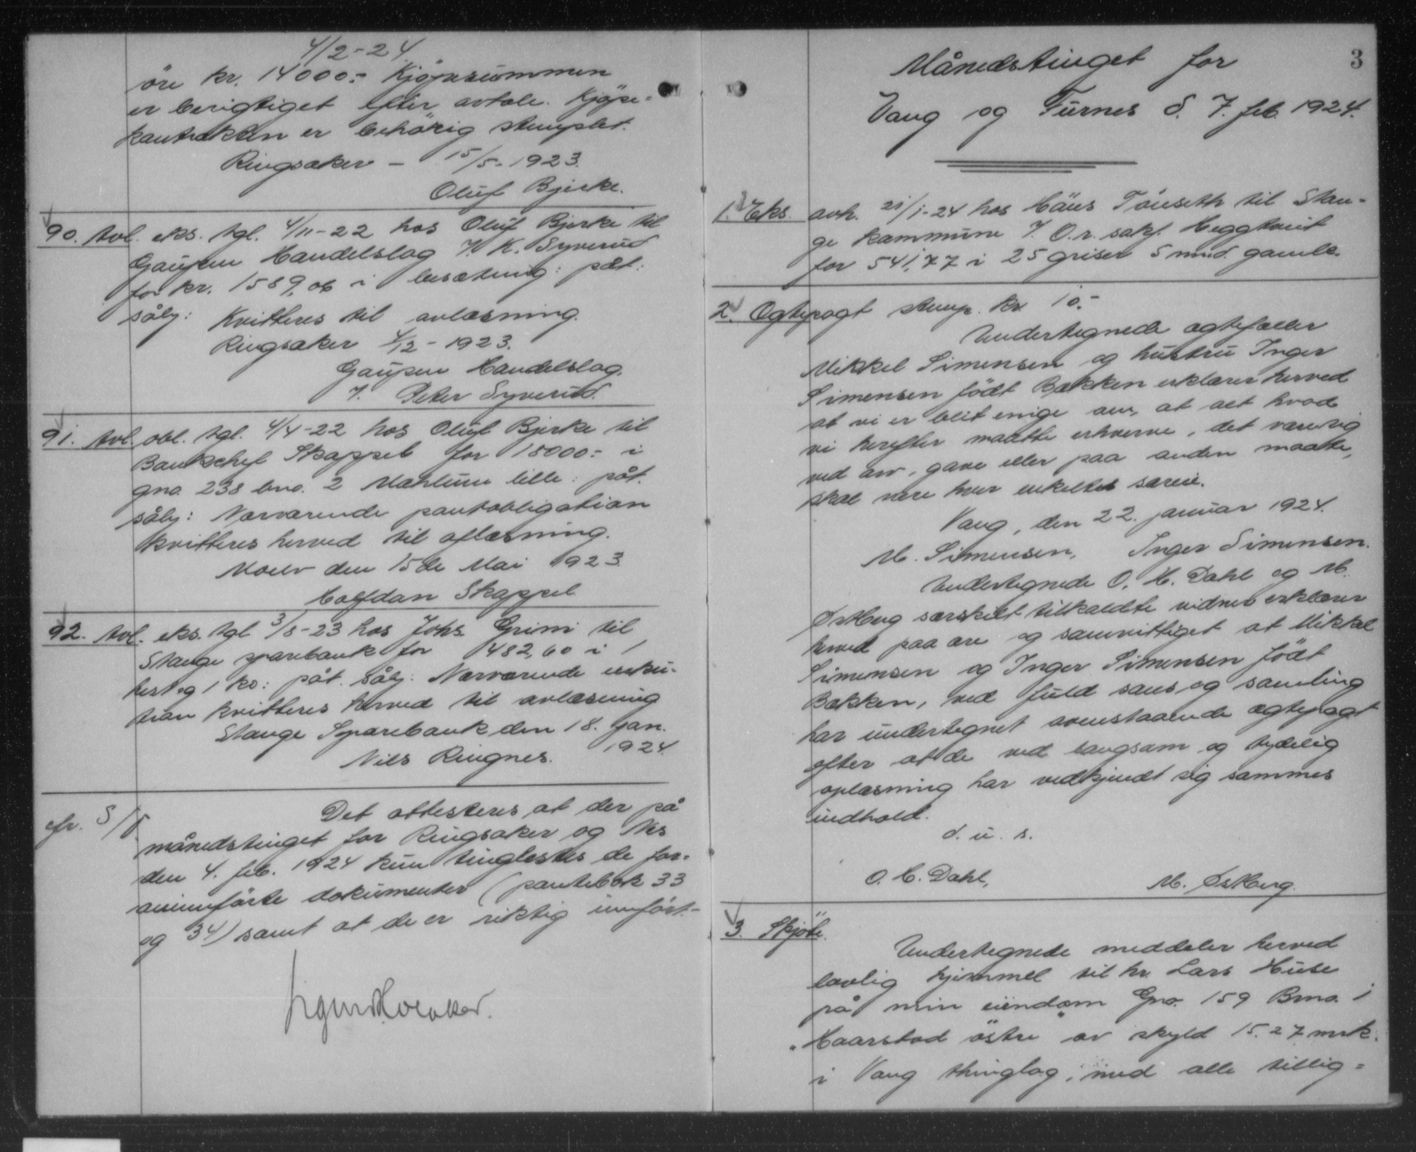 4/2-24.
øre kr. 14000.- Kjøpesummen
er berigtiget efter avtale. Kjøpe-
kontrakten er behørig stemplet.
Ringsaker - 15/5-1923.
Oluf Bjerke.
90. Avl. eks. tgl. 4/11-22 hos Oluf Bjerke til
Gaupen Handelslag v. K. Syverud
for kr. 1589,06 i besætning: påt:
sålj: Kvitteres til avlæsning.
Ringsaker 4/12-1923.
Gaupen Handelslag.
Peter Syverud.
91. Avl. obl. tgl. 4/4-22 hos Oluf Bjerke til
Bankchef Skappel for 15000.- i
gno. 238 bno. 2 Martum lille: påt.
sålj: Nærværende pantobligation
kvitteres herved til aflæsning.
Moelv den 15de Mai 1923
Halfdan Skappel
92. Avl. eks. tgl 3/5-23 hos Johs. Grimi til
Stange sparebank for 482,60 i 1
hest og 1 ko: påt. sålj: Nærværende eseku-
tion kvitteres herved til avlæsning
Stange Sparebank den 18. jan.
1924
Nils Ringnes.
Det attesteres at der på
månedstinget for Ringsaker og Nes
den 4. feb. 1924 kun tinglestes de for-
aninnførte dokumenter (pantebok 33
og 34) samt at de er riktig innført.-
3
Månedstinget for
Vang og Furnes d. 7. feb. 1924.
1. Eks. avh. 21/1-24 hos Hans Tønseth til Stan-
ge kommune v. O.r. sakf. Heggtveit
for 541,77 i 25 griser 5 mnd. gamle.
2. Egtepagt stemp. kr 10.-
Undertegnede egtefæller
Mikkel Simensen og hustru Inger
Simensen født Bakken erklærer herved
at vi er blit enige om, at alt hvad
vi herefter maatte erhverve, det være sig
ved arv, gave eller paa anden maate,
skal være hver enkeltes særeie.
Vang, den 22. januar 1924.
M. Simensen, Inger Simensen.
Undertegnede O. H. Dahl og M.
Østberg særskilt tilkaldte vidner erklærer
herved paa ære og samvittiget at Mikkel
Simensen og Inger Simensen født
Bakken, ved fuld sans og samling
har undertegnet ovenstaaende ægtepagt
efter at de ved langsom og tydelig
oplæsning har vedkjendt sig sammes
indhold.
d. u. s.
O. H. Dahl, M. Østberg.
3. Skjöte.
Undertegnede meddeler herved
lovlig hjemmel til hr. Lars Huse
på min eiendom Gno. 159 Bno. 1
"Haarstad östre" av skyld 15.27 mrk.
i Vang thinglag, med alle tillig-